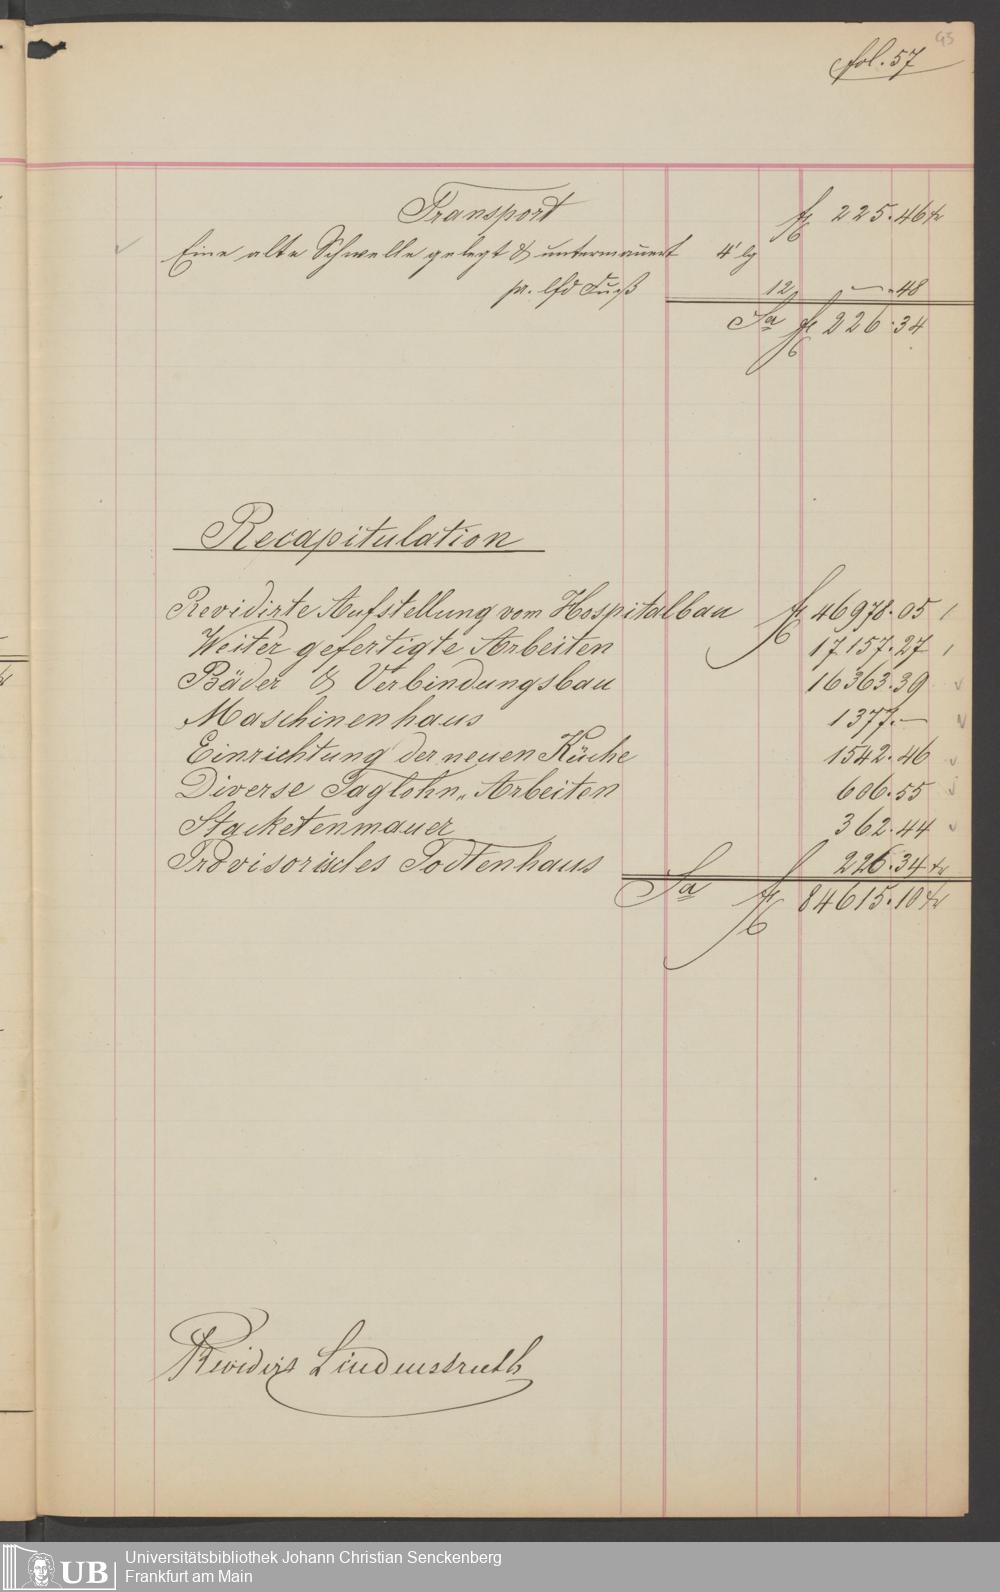 95
fol. 57
Transport fl 225.46 kr
Eine alte Schwelle gelegt & untermauert 4' lg
pr. lfd Fuß 12 — „ 48
Sa fl 226.34
Recapitulation
Revidirte Aufstellung vom Hospitalbau fl 46978.05
Weiter gefertigte Arbeiten 17157.27
Bäder & Verbindungsbau 16363.39
Maschinenhaus 1377.—
Einrichtung der neuen Küche 1542.46
Diverse Taglohn„ Arbeiten 606.55
Stacketenmauer 362.44
Provisorisches Todtenhaus 226.34 kr
Sa fl 84615.10 kr
Revidirt Lindenstruth
UB
Universitätsbibliothek Johann Christian Senckenberg
Frankfurt am Main